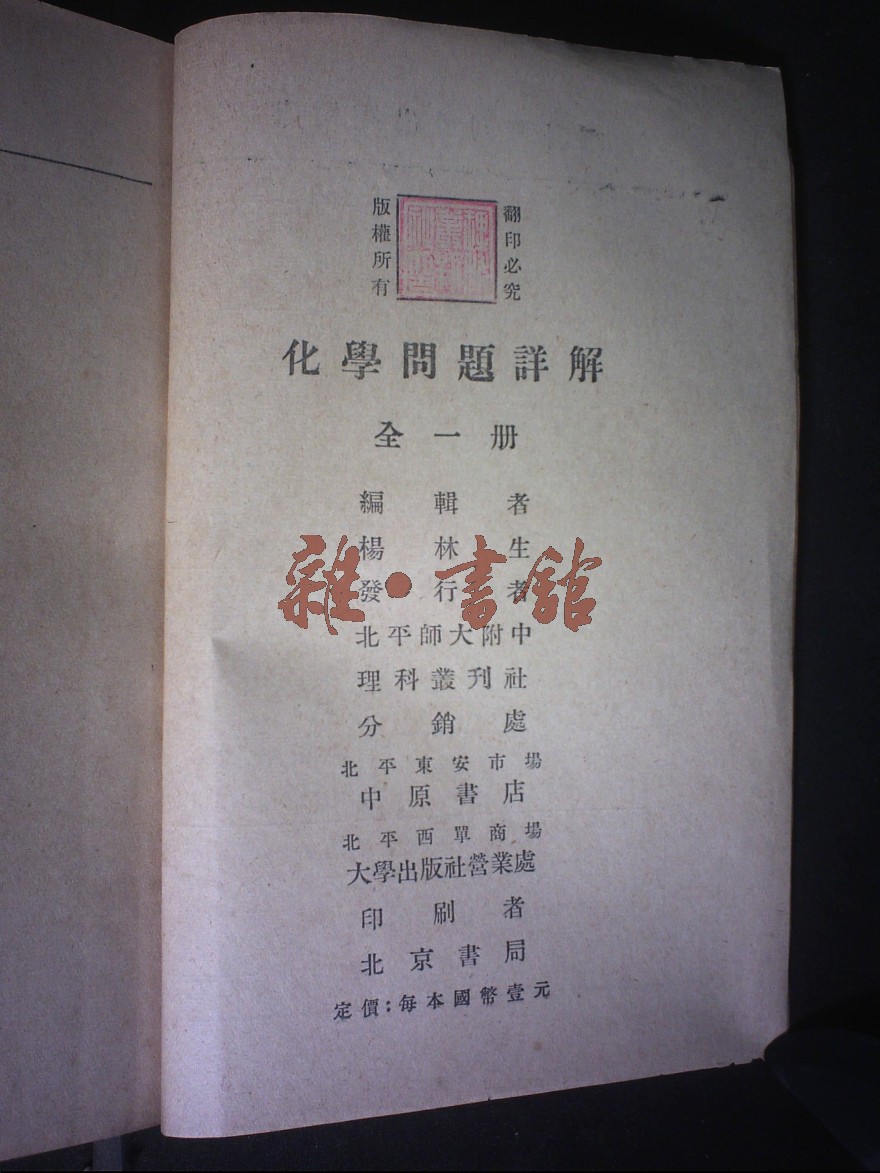 版權所有
翻印必究
化學問題詳解
全一册
編輯者
楊林生
發行者
北平師大附中
理科叢刊社
分銷處
北平東安市場
中原書店
北平西單商場
大學出版社營業處
印刷者
北京書局
定價：每本國幣壹元
雜·書館